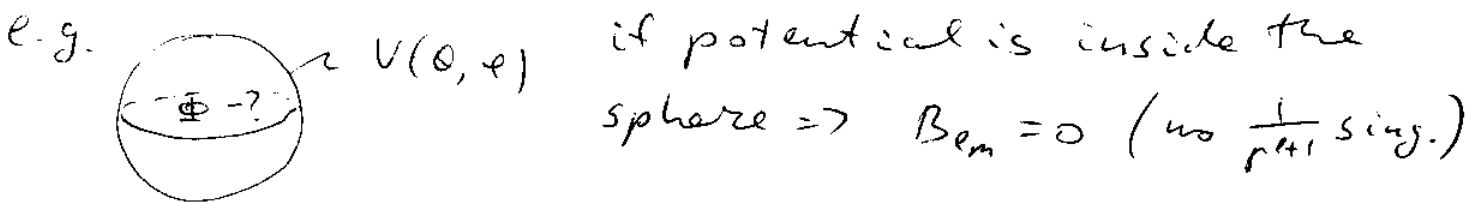 e.g. Φ - ? V(θ, φ) if potential is inside the
sphere => B_{lm} = 0 (no \frac{1}{r^{l+1}} sing.)